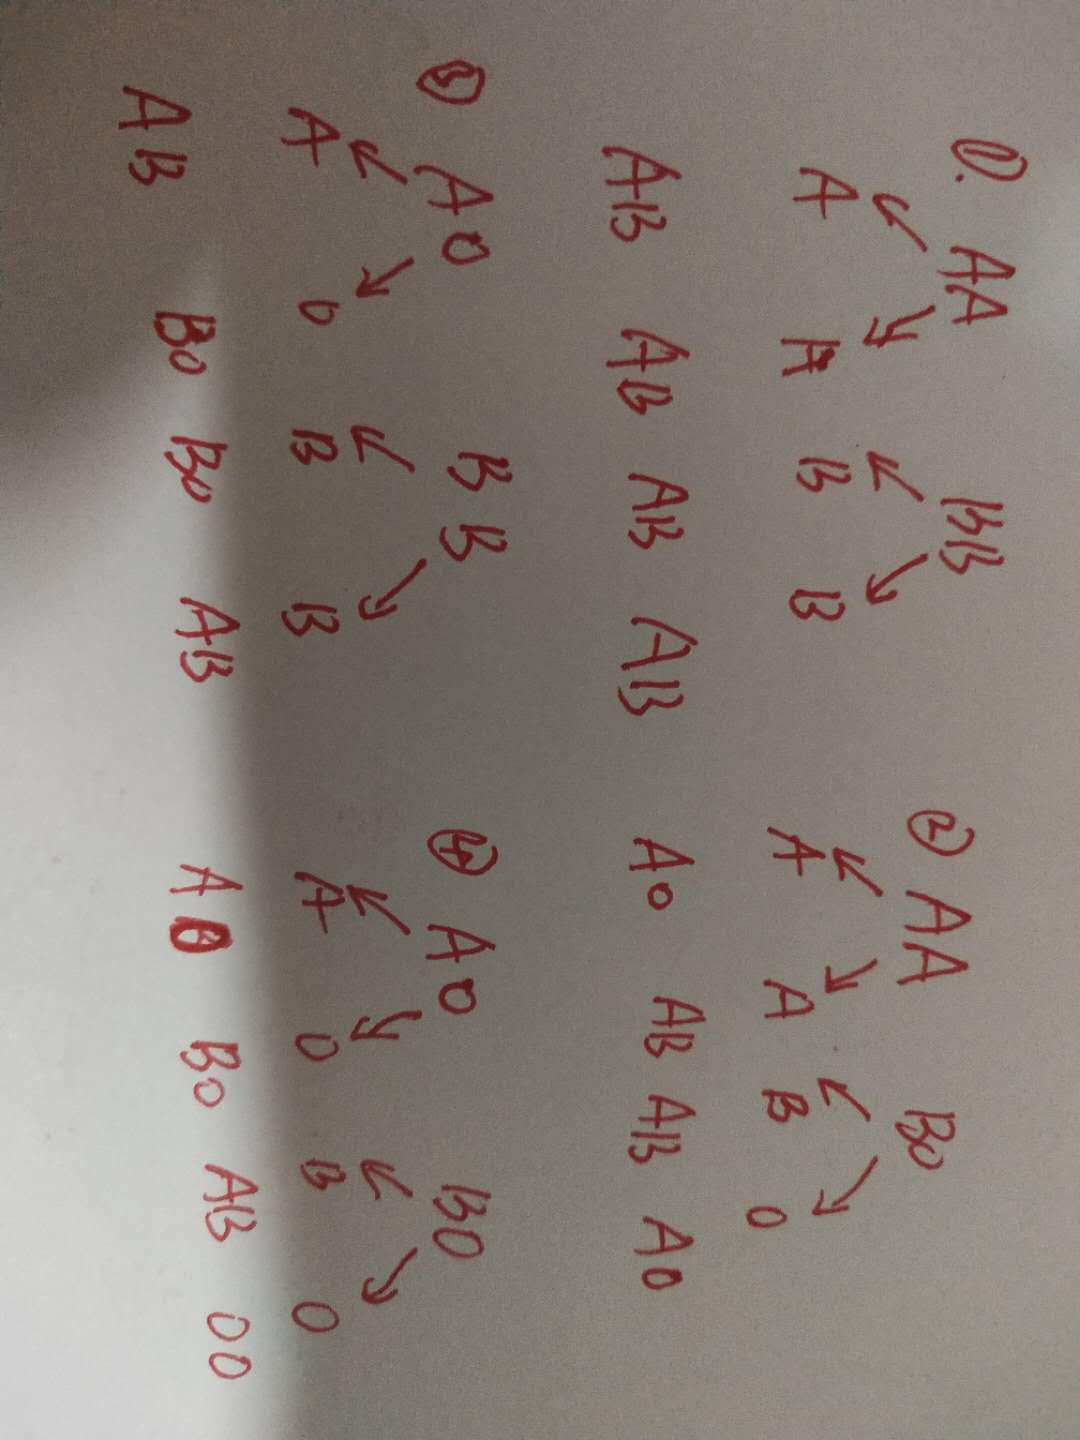 ①. AA BB ② AA BO
A A B B A A B O
AB AB AB AB AO AB AB AO
③ AO BB ④ AO BO
A O B B A O B O
AB BO BO AB AO BO AB OO